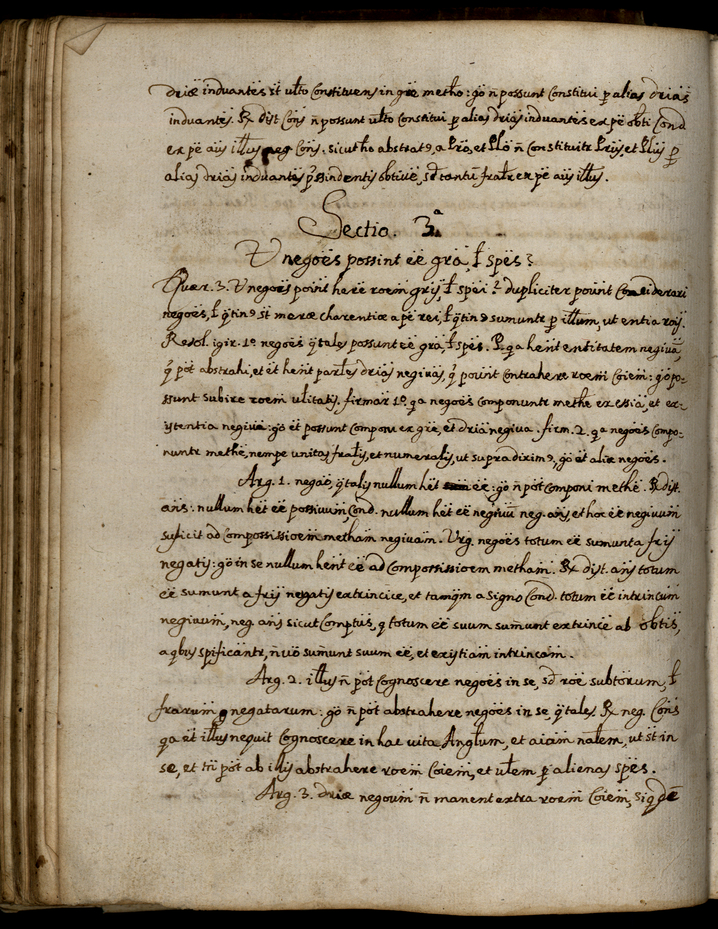 driæ induantes st ulto Constituens in gre metho: gò ñ possunt Constitui p alias drias
induantes. Rx dist Cons ñ possunt ulto Constitui p alias drias induantes ex pè obti Cond
ex pè aijs illus neg Cons: sicut ho abstrat9, a Pro, et Plo ñ Constituitr Prijs, et Plijs p
alias drias induantis pssindentis obtiuè, sd tantu fratr ex pè aijs illus.
Sectio. 3ª
V negoes possint èè gra, ł spès?
Quær. 3. V negoes point herè roem grij, ł spèi? dupliciter poiunt Considerari
negoes, ł qtin9 st meræ charentiæ a pè rei, ł qtin9 sumuntr p illum, ut entia rois.
Resol. igir. 1º negoes qtales possunt èè gra, ł spès. P. qa hent entitatem negiuã,
q pòt abstrahi, et èt hent partes drias negiuas, q poiunt contrahere roem Coiem: gò po-
ssunt subire roem ulitatis. firmar 1º. qa negoes Componuntr methè ex essia, et ex-
istentia negiua: gò èt possunt Componi ex gre, et dria negiua. firm. 2. qa negoes Compo-
nuntr methè, nempe unitas fralis, et numeralis, ut supra dixim9, gò èt aliæ negoes.
Arg. 1. negao, qtalis nullum het èè: gò ñ pòt Componi methè. Rx dist.
ans: nullum het èè posiuum, Cond. nullum het èè negiuũ neg. ans, et hoc èè negiuum
suficit ad Compossissioem metham negiuam. Urg. negoes totum èè sumunt a frijs
negatis: gò in se nullum hent èè ad Compossissioem metham. Rx dist. ans totum
èè sumunt a frijs negatis extrincice, et tamqm a signo Cond. totum èè intrincum
negiuum, neg ans sicut Comptus, q totum èè suum sumunt extrince ab obtis,
a qbus spificantr, ñ uò sumunt suum èè, et existiam intrincam.
Arg. 2. illus ñ pòt Cognoscere negoes in se, sd roè subtorum, ł
frarum negatarum: gò ñ pòt abstrahere negoes in se, qtales. Rx neg. Cons
qa èt illus nequit Cognoscere in hac uita Anglum, et aiam nalem, ut st in
se, et tñ pòt ab illis abstrahere roem Coiem, et ulem p alienas spès.
Arg. 3. driæ negoum ñ manent extra roem Coiem, siqdè